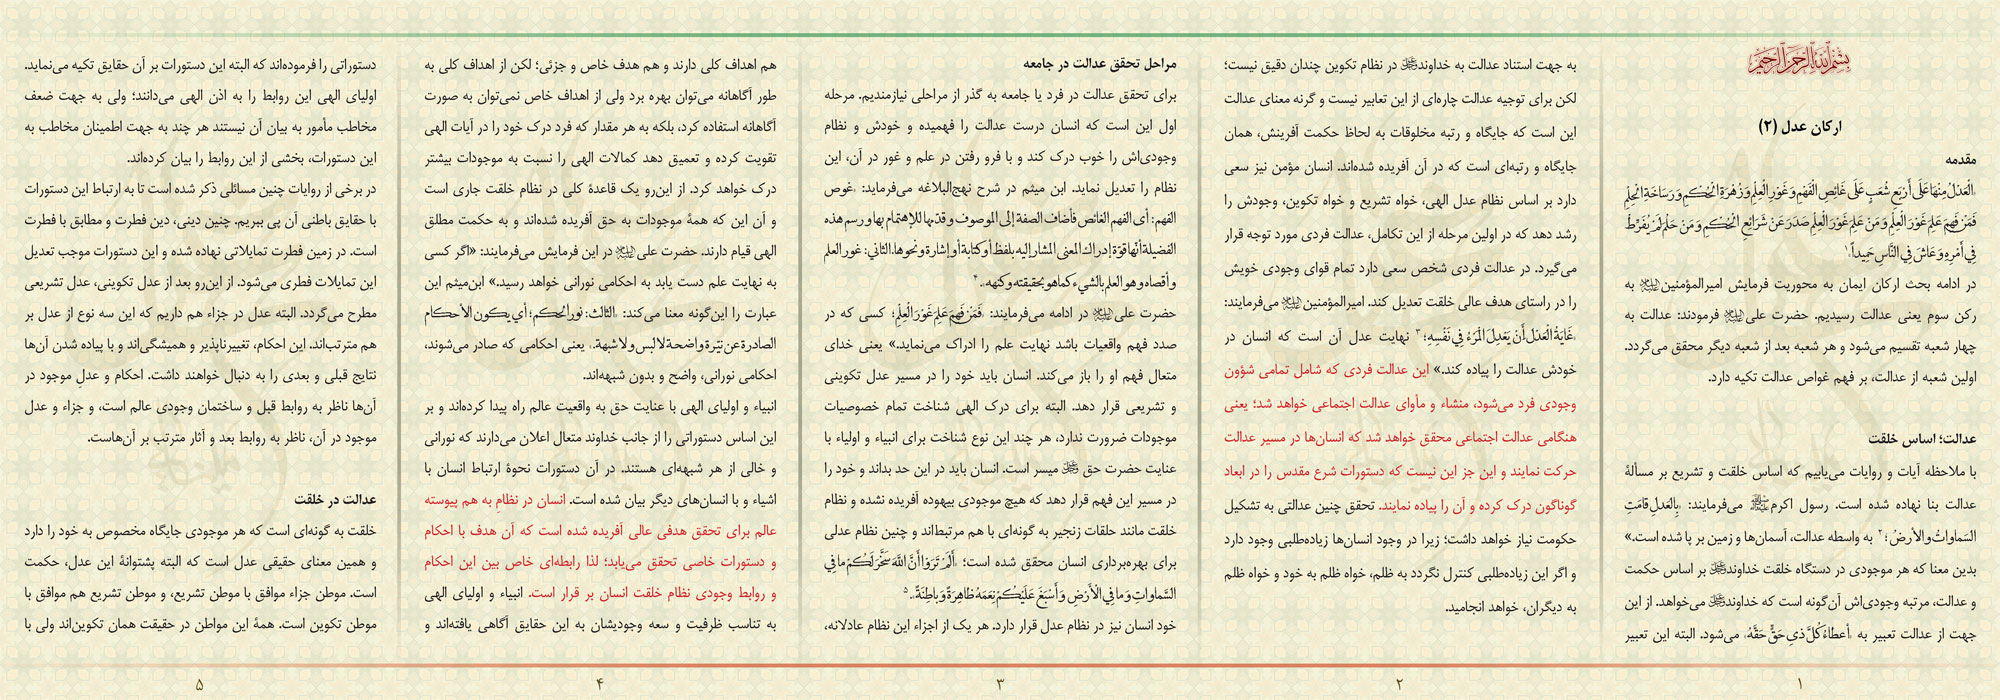 بسم الله الرحمن الرحیم
ارکان عدل (۲)
مقدمه
«الْعَدْلُ مِنْهَا عَلَى أَرْبَعِ شُعَبٍ عَلَى غَائِصِ الْفَهْمِ وَ غَوْرِ الْعِلْمِ وَ زُهْرَةِ الْحُكْمِ وَ رَسَاخَةِ الْحِلْمِ
فَمَنْ فَهِمَ عَلِمَ غَوْرَ الْعِلْمِ وَ مَنْ عَلِمَ غَوْرَ الْعِلْمِ صَدَرَ عَنْ شَرَائِعِ الْحُكْمِ وَ مَنْ حَلُمَ لَمْ يُفَرِّطْ
فِي أَمْرِهِ وَ عَاشَ فِي النَّاسِ حَمِيداً»۱
در ادامه بحث ارکان ایمان به محوریت فرمایش امیرالمؤمنین علیه‌السلام به
رکن سوم یعنی عدالت رسیدیم. حضرت علی علیه‌السلام فرمودند: عدالت به
چهار شعبه تقسیم می‌شود و هر شعبه بعد از شعبه دیگر محقق می‌گردد.
اولین شعبه از عدالت، بر فهم غواص عدالت تکیه دارد.
عدالت؛ اساس خلقت
با ملاحظه آیات و روایات می‌یابیم که اساس خلقت و تشریع بر مسألهٔ
عدالت بنا نهاده شده است. رسول اکرم ﷺ می‌فرمایند: «بِالعَدلِ قامَتِ
السَّماواتُ والأرضُ؛۲ به واسطه عدالت، آسمان‌ها و زمین بر پا شده است.»
بدین معنا که هر موجودی در دستگاه خلقت خداوند ﷻ بر اساس حکمت
و عدالت، مرتبه وجودی‌اش آن‌گونه است که خداوند ﷻ می‌خواهد. از این
جهت از عدالت تعبیر به «أعطاءُ كُلَّ ذي حَقٍّ حَقَّهُ» می‌شود. البته این تعبیر
۱
به جهت استناد عدالت به خداوند ﷻ در نظام تکوین چندان دقیق نیست؛
لکن برای توجیه عدالت چاره‌ای از این تعابیر نیست و گرنه معنای عدالت
این است که جایگاه و رتبه مخلوقات به لحاظ حکمت آفرینش، همان
جایگاه و رتبه‌ای است که در آن آفریده شده‌اند. انسان مؤمن نیز سعی
دارد بر اساس نظام عدل الهی، خواه تشریع و خواه تکوین، وجودش را
رشد دهد که در اولین مرحله از این تکامل، عدالت فردی مورد توجه قرار
می‌گیرد. در عدالت فردی شخص سعی دارد تمام قوای وجودی خویش
را در راستای هدف عالی خلقت تعدیل کند. امیرالمؤمنین علیه‌السلام می‌فرمایند:
«غايَةُ الْعَدْلِ أَنْ يَعْدِلَ الْمَرْءُ فِي نَفْسِهِ؛۳ نهایت عدل آن است که انسان در
خودش عدالت را پیاده کند.» این عدالت فردی که شامل تمامی شؤون
وجودی فرد می‌شود، منشاء و مأوای عدالت اجتماعی خواهد شد؛ یعنی
هنگامی عدالت اجتماعی محقق خواهد شد که انسان‌ها در مسیر عدالت
حرکت نمایند و این جز این نیست که دستورات شرع مقدس را در ابعاد
گوناگون درک کرده و آن را پیاده نمایند. تحقق چنین عدالتی به تشکیل
حکومت نیاز خواهد داشت؛ زیرا در وجود انسان‌ها زیاده‌طلبی وجود دارد
و اگر این زیاده‌طلبی کنترل نگردد به ظلم، خواه ظلم به خود و خواه ظلم
به دیگران، خواهد انجامید.
۲
مراحل تحقق عدالت در جامعه
برای تحقق عدالت در فرد یا جامعه به گذر از مراحلی نیازمندیم. مرحله
اول این است که انسان درست عدالت را فهمیده و خودش و نظام
وجودی‌اش را خوب درک کند و با فرو رفتن در علم و غور در آن، این
نظام را تعدیل نماید. ابن میثم در شرح نهج‌البلاغه می‌فرماید: «غوص
الفهم: أی الفهم الغائص فأضاف الصفة إلی الموصوف و قدّمها للإهتمام بها و رسم هذه
الفضیلة أنّها قوّة إدراك المعنی المشار إلیه بلفظ أو کتابة أو إشارة و نحوها. الثانی: غور العلم
و أقصاه و هو العلم بالشیء کما هو بحقیقته و کنهه.»۴
حضرت علی علیه‌السلام در ادامه می‌فرمایند: «فَمَنْ فَهِمَ عَلِمَ غَوْرَ الْعِلْمِ؛ کسی که در
صدد فهم واقعیات باشد نهایت علم را ادراک می‌نماید.» یعنی خدای
متعال فهم او را باز می‌کند. انسان باید خود را در مسیر عدل تکوینی
و تشریعی قرار دهد. البته برای درک الهی شناخت تمام خصوصیات
موجودات ضرورت ندارد، هر چند این نوع شناخت برای انبیاء و اولیاء با
عنایت حضرت حق ﷻ میسر است. انسان باید در این حد بداند و خود را
در مسیر این فهم قرار دهد که هیچ موجودی بیهوده آفریده نشده و نظام
خلقت مانند حلقات زنجیر به گونه‌ای با هم مرتبط‌اند و چنین نظام عدلی
برای بهره‌برداری انسان محقق شده است؛ «أَلَمْ تَرَوْا أَنَّ اللَّهَ سَخَّرَ لَكُمْ مَا فِي
السَّمَاوَاتِ وَ مَا فِي الْأَرْضِ وَ أَسْبَغَ عَلَيْكُمْ نِعَمَهُ ظَاهِرَةً وَ بَاطِنَةً».۵
خود انسان نیز در نظام عدل قرار دارد. هر یک از اجزاء این نظام عادلانه،
۳
هم اهداف کلی دارند و هم هدف خاص و جزئی؛ لکن از اهداف کلی به
طور آگاهانه می‌توان بهره برد ولی از اهداف خاص نمی‌توان به صورت
آگاهانه استفاده کرد، بلکه به هر مقدار که فرد درک خود را در آیات الهی
تقویت کرده و تعمیق دهد کمالات الهی را نسبت به موجودات بیشتر
درک خواهد کرد. از این‌رو یک قاعدهٔ کلی در نظام خلقت جاری است
و آن این که همهٔ موجودات به حق آفریده شده‌اند و به حکمت مطلق
الهی قیام دارند. حضرت علی علیه‌السلام در این فرمایش می‌فرمایند: «اگر کسی
به نهایت علم دست یابد به احکامی نورانی خواهد رسید.» ابن‌میثم این
عبارت را این‌گونه معنا می‌کند: «الثالث: نور الحکم؛ أی یکون الأحکام
الصادرة عن نیّرة واضحة لا لبس ولا شبهة.» یعنی احکامی که صادر می‌شوند،
احکامی نورانی، واضح و بدون شبهه‌اند.
انبیاء و اولیای الهی با عنایت حق به واقعیت عالم راه پیدا کرده‌اند و بر
این اساس دستوراتی را از جانب خداوند متعال اعلان می‌دارند که نورانی
و خالی از هر شبهه‌ای هستند. در آن دستورات نحوهٔ ارتباط انسان با
اشیاء و با انسان‌های دیگر بیان شده است. انسان در نظامِ به هم پیوسته
عالم برای تحقق هدفی عالی آفریده شده است که آن هدف با احکام
و دستورات خاصی تحقق می‌یابد؛ لذا رابطه‌ای خاص بین این احکام
و روابط وجودی نظام خلقت انسان بر قرار است. انبیاء و اولیای الهی
به تناسب ظرفیت و سعه وجودیشان به این حقایق آگاهی یافته‌اند و
۴
دستوراتی را فرموده‌اند که البته این دستورات بر آن حقایق تکیه می‌نماید.
اولیای الهی این روابط را به اذن الهی می‌دانند؛ ولی به جهت ضعف
مخاطب مأمور به بیان آن نیستند هر چند به جهت اطمینان مخاطب به
این دستورات، بخشی از این روابط را بیان کرده‌اند.
در برخی از روایات چنین مسائلی ذکر شده است تا به ارتباط این دستورات
با حقایق باطنی آن پی ببریم. چنین دینی، دین فطرت و مطابق با فطرت
است. در زمین فطرت تمایلاتی نهاده شده و این دستورات موجب تعدیل
این تمایلات فطری می‌شود. از این‌رو بعد از عدل تکوینی، عدل تشریعی
مطرح می‌گردد. البته عدل در جزاء هم داریم که این سه نوع از عدل بر
هم مترتب‌اند. این احکام، تغییرناپذیر و همیشگی‌اند و با پیاده شدن آن‌ها
نتایج قبلی و بعدی را به دنبال خواهند داشت. احکام و عدلِ موجود در
آن‌ها ناظر به روابط قبل و ساختمان وجودی عالم است، و جزاء و عدل
موجود در آن، ناظر به روابط بعد و آثار مترتب بر آن‌هاست.
عدالت در خلقت
خلقت به گونه‌ای است که هر موجودی جایگاه مخصوص به خود را دارد
و همین معنای حقیقی عدل است که البته پشتوانهٔ این عدل، حکمت
است. موطن جزاء موافق با موطن تشریع، و موطن تشریع هم موافق با
موطن تکوین است. همهٔ این مواطن در حقیقت همان تکوین‌اند ولی با
۵